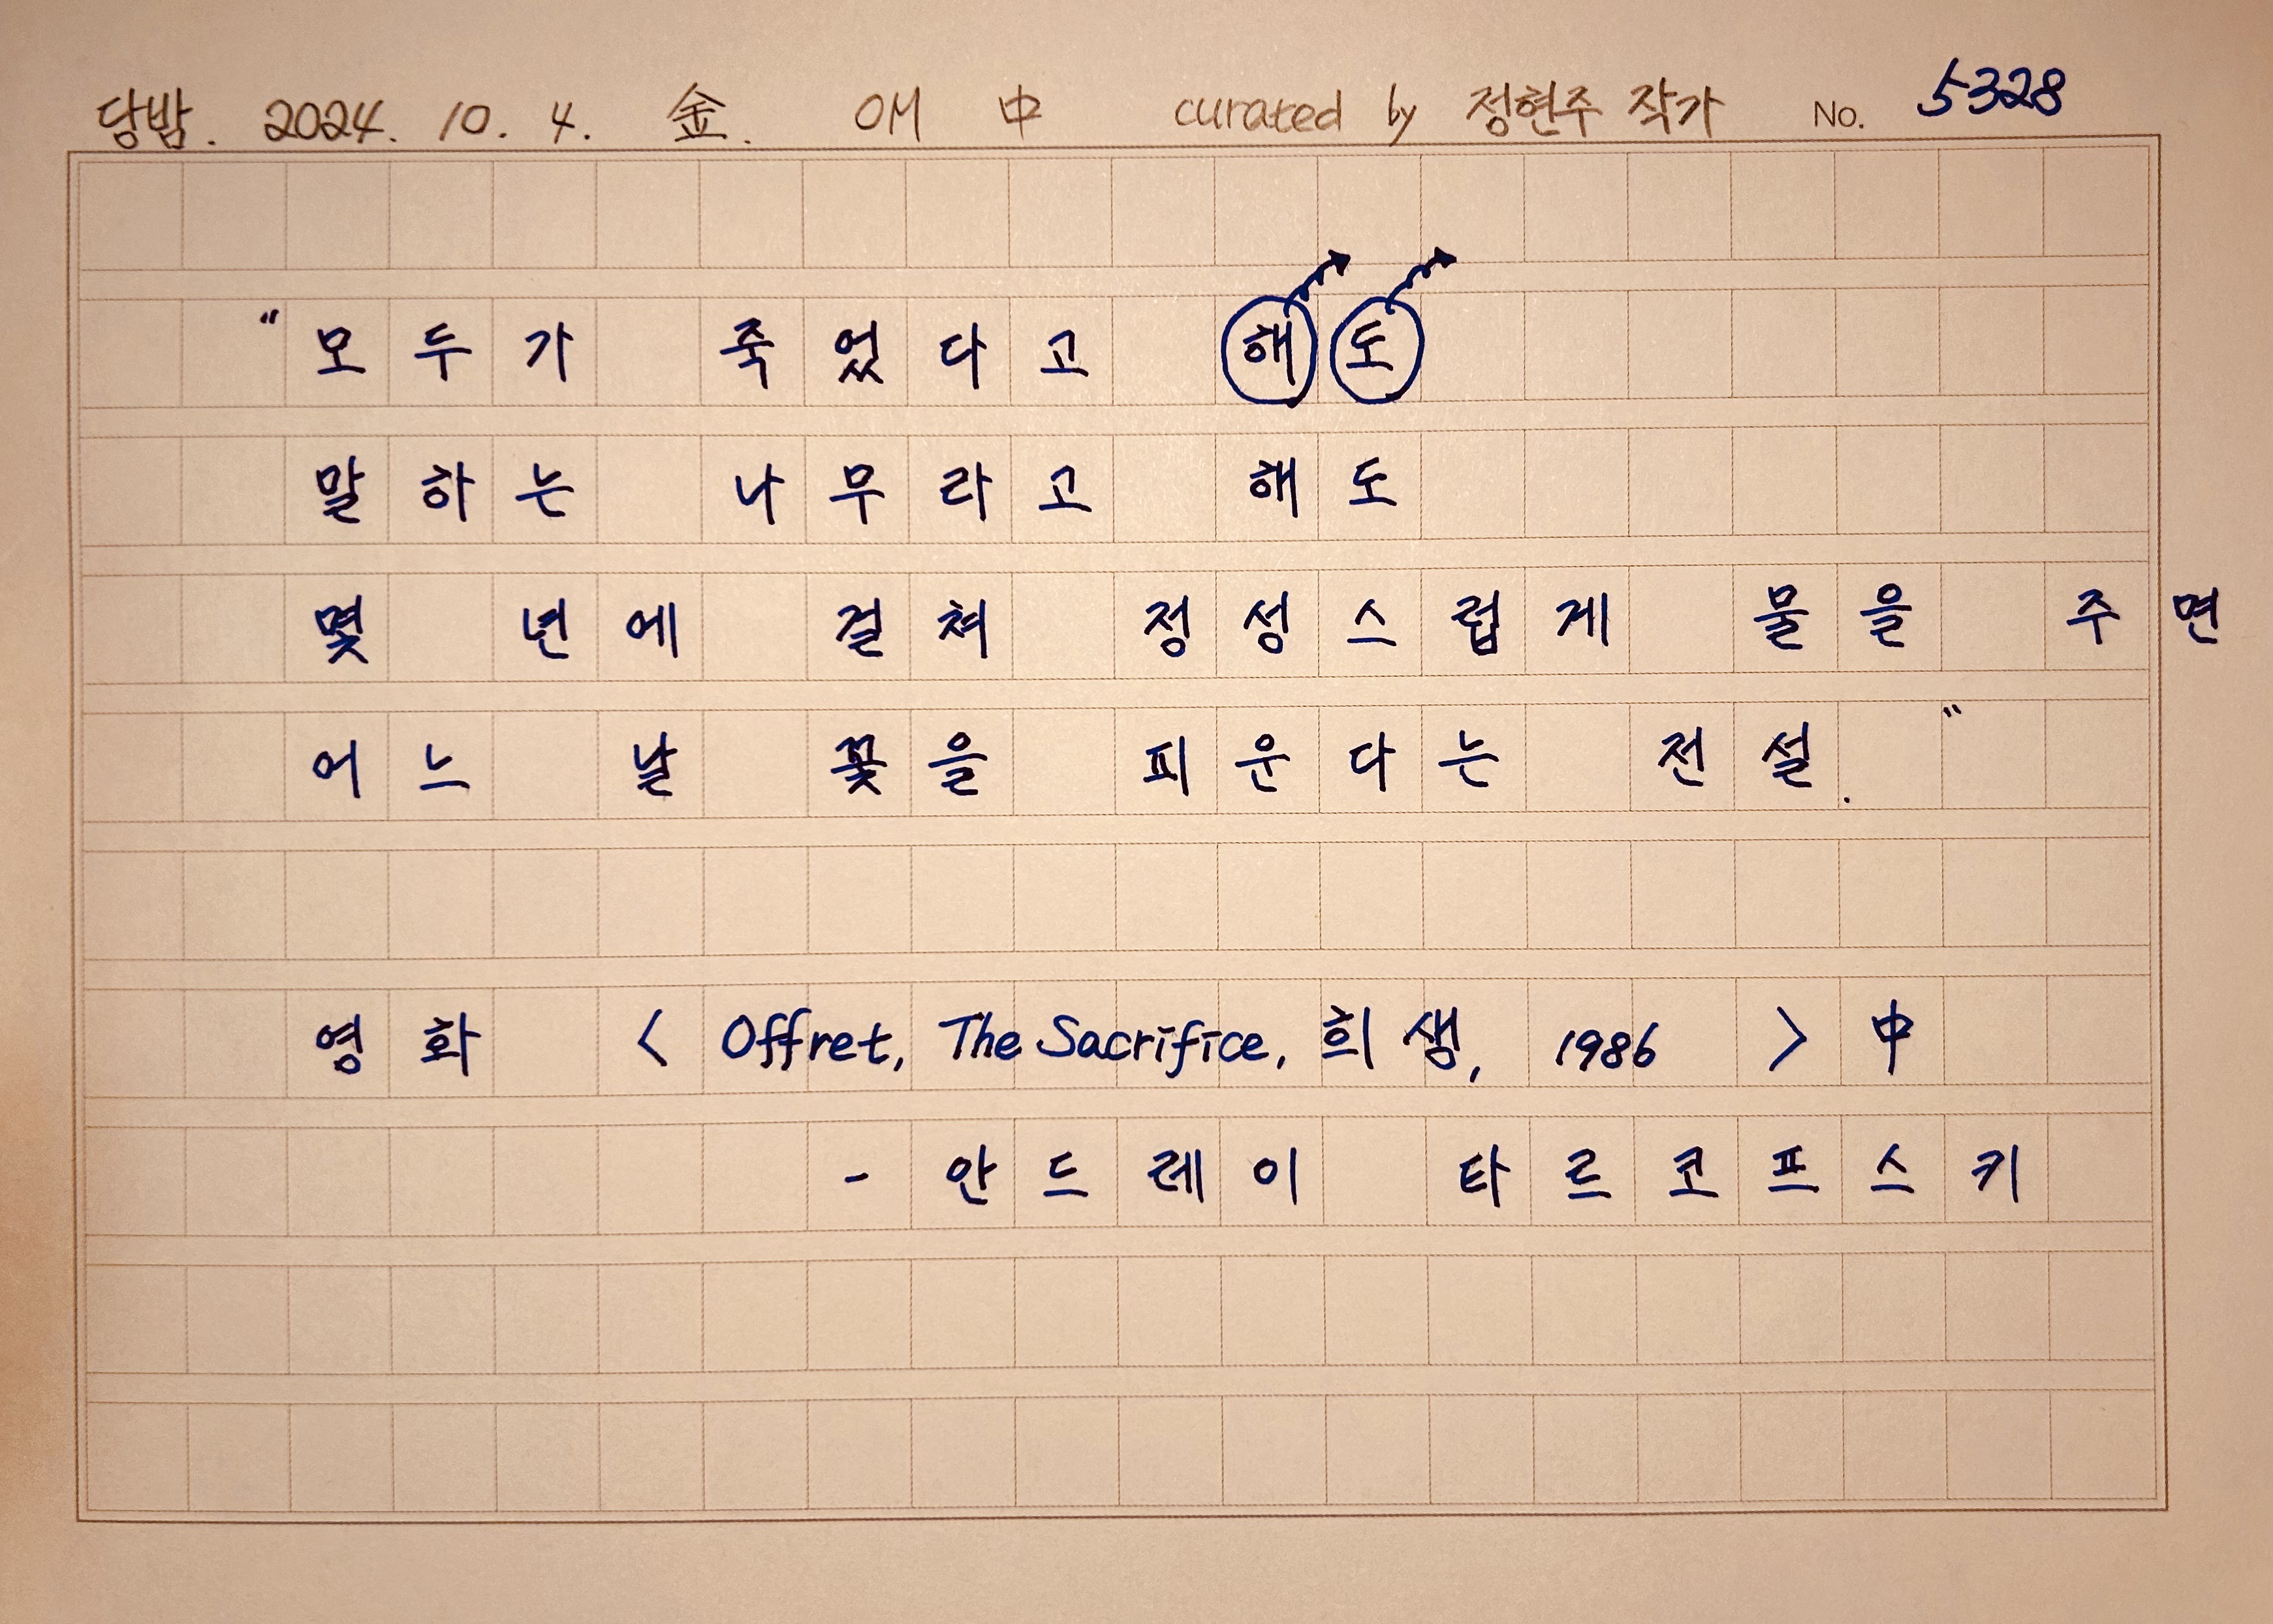 당밤. 2024. 10. 4. 金. OM 中 curated by 정현주 작가 No. 5328
“모두가 죽었다고 해도
말하는 나무라고 해도
몇 년에 걸쳐 정성스럽게 물을 주면
어느 날 꽃을 피운다는 전설.”
영화 < Offret, The Sacrifice, 희생, 1986 > 中
- 안드레이 타르코프스키